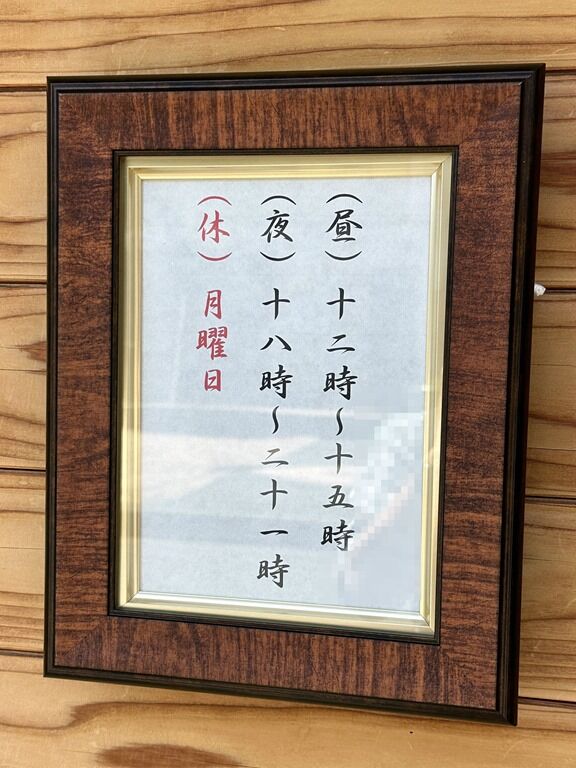 (昼)十二時〜十五時
(夜)十八時〜二十一時
(休)月曜日